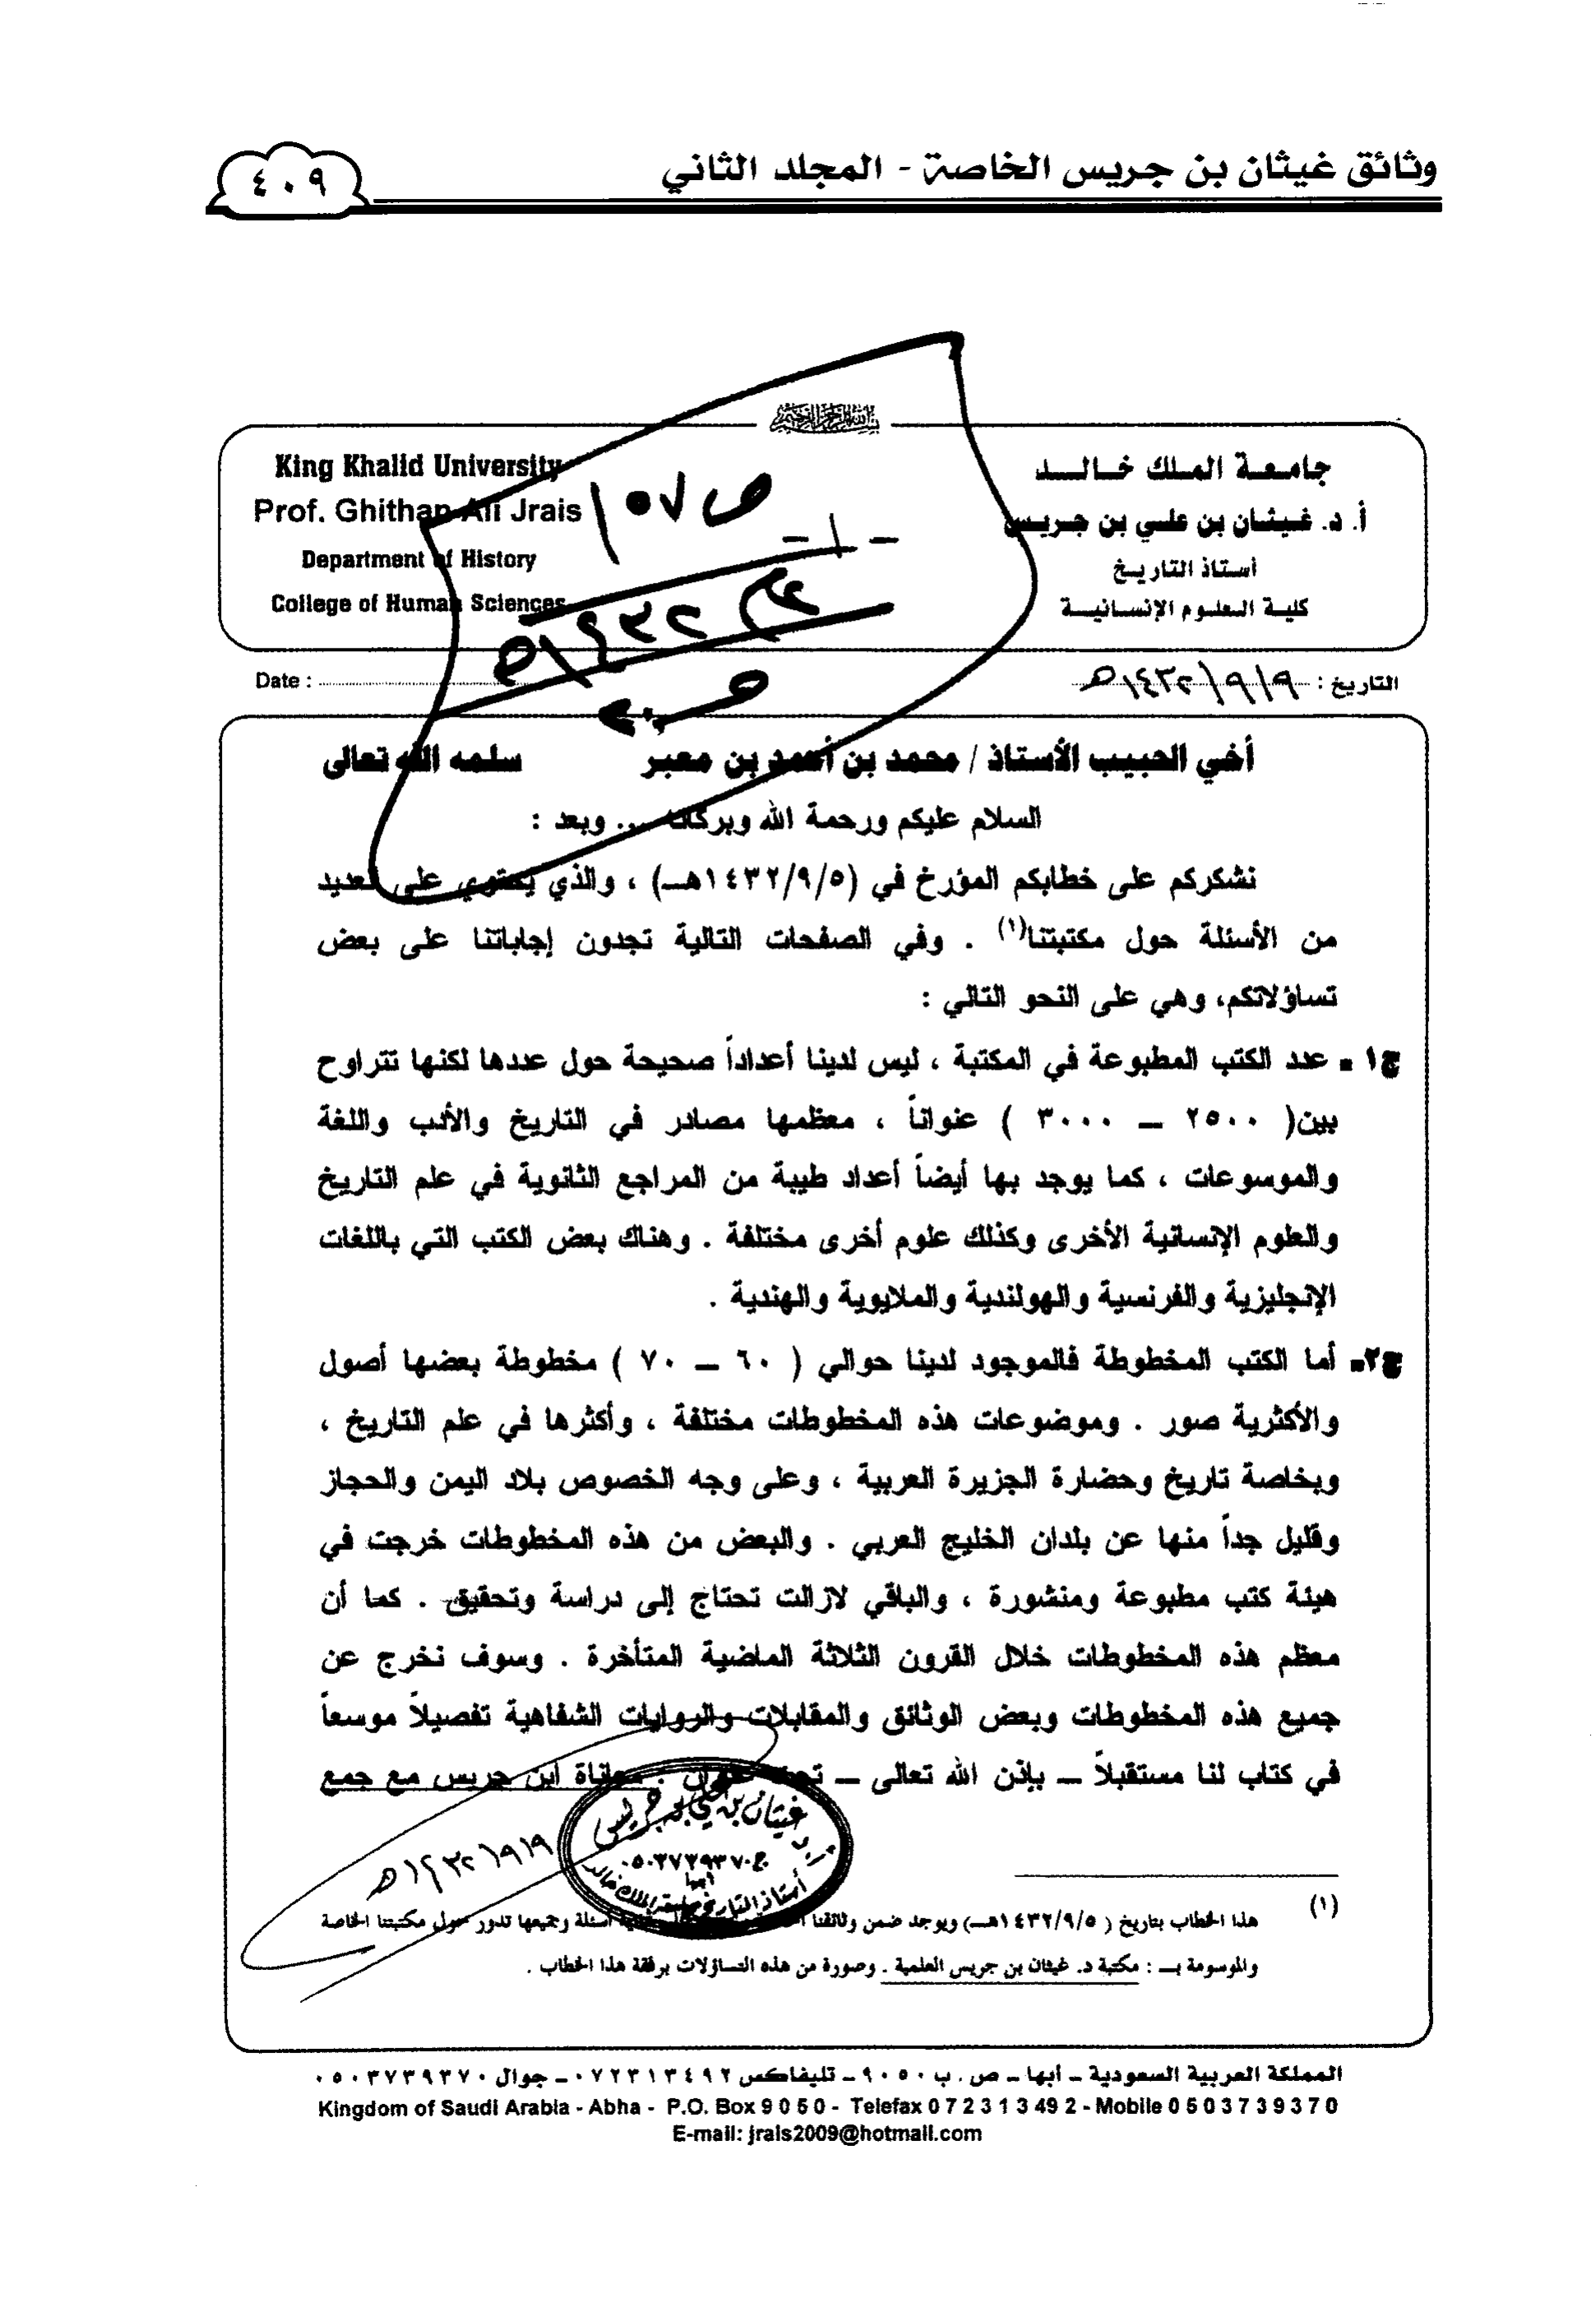 وثائق غيثان بن جريس الخاصة - المجلد الثاني
٤٠٩
جامعة الملك خالد
أ. د. غيثان بن علي بن جريس
أستاذ التاريخ
كلية العلوم الإنسانية
King Khalid University
Prof. Ghithan Ali Jrais
Department of History
College of Human Sciences
ص ١٠٧
- ١ -
عام ١٤٣٢هـ
التاريخ : ١٤٣٢/٩/٩هـ
Date :
أخي الحبيب الأستاذ / محمد بن أحمد بن معبر سلمه الله تعالى
السلام عليكم ورحمة الله وبركاته ... وبعد :
نشكركم على خطابكم المؤرخ في (١٤٣٢/٩/٥هـ) ، والذي يحتوي على العديد
من الأسئلة حول مكتبتنا(١) . وفي الصفحات التالية تجدون إجاباتنا على بعض
تساؤلاتكم، وهي على النحو التالي :
ج١ - عدد الكتب المطبوعة في المكتبة ، ليس لدينا أعداداً صحيحة حول عددها لكنها تتراوح
بين( ٢٥٠٠ – ٣٠٠٠ ) عنواناً ، معظمها مصادر في التاريخ والأدب واللغة
والموسوعات ، كما يوجد بها أيضاً أعداد طيبة من المراجع الثانوية في علم التاريخ
والعلوم الإنسانية الأخرى وكذلك علوم أخرى مختلفة . وهناك بعض الكتب التي باللغات
الإنجليزية والفرنسية والهولندية والملايوية والهندية .
ج٢- أما الكتب المخطوطة فالموجود لدينا حوالي ( ٦٠ – ٧٠ ) مخطوطة بعضها أصول
والأكثرية صور . وموضوعات هذه المخطوطات مختلفة ، وأكثرها في علم التاريخ ،
وبخاصة تاريخ وحضارة الجزيرة العربية ، وعلى وجه الخصوص بلاد اليمن والحجاز
وقليل جداً منها عن بلدان الخليج العربي . والبعض من هذه المخطوطات خرجت في
هيئة كتب مطبوعة ومنشورة ، والباقي لازالت تحتاج إلى دراسة وتحقيق . كما أن
معظم هذه المخطوطات خلال القرون الثلاثة الماضية المتأخرة . وسوف نخرج عن
جميع هذه المخطوطات وبعض الوثائق والمقابلات والروايات الشفاهية تفصيلاً موسعاً
في كتاب لنا مستقبلاً – بإذن الله تعالى – تحت عنوان : معاناة ابن جريس مع جمع
غيثان بن علي بن جريس
ج.٠٥٠٣٧٣٩٣٧٠
أبها
أستاذ التاريخ بجامعة الملك خالد
١٤٣٢/٩/٩هـ
(١) هذا الخطاب بتاريخ ( ١٤٣٢/٩/٥هـ) ويوجد ضمن وثائقنا أسئلة وجميعها تدور حول مكتبتنا الخاصة
والموسومة بـ : مكتبة د. غيثان بن جريس العلمية . وصورة من هذه التساؤلات برفقة هذا الخطاب .
المملكة العربية السعودية – أبها – ص . ب ٩٠٥٠ – تليفاكس ٠٧٢٣١٣٤٩٢ – جوال ٠٥٠٣٧٣٩٣٧٠
Kingdom of Saudi Arabia - Abha - P.O. Box 9 0 5 0 - Telefax 0 7 2 3 1 3 49 2 - Mobile 0 5 0 3 7 3 9 3 7 0
E-mail: jrais2009@hotmail.com